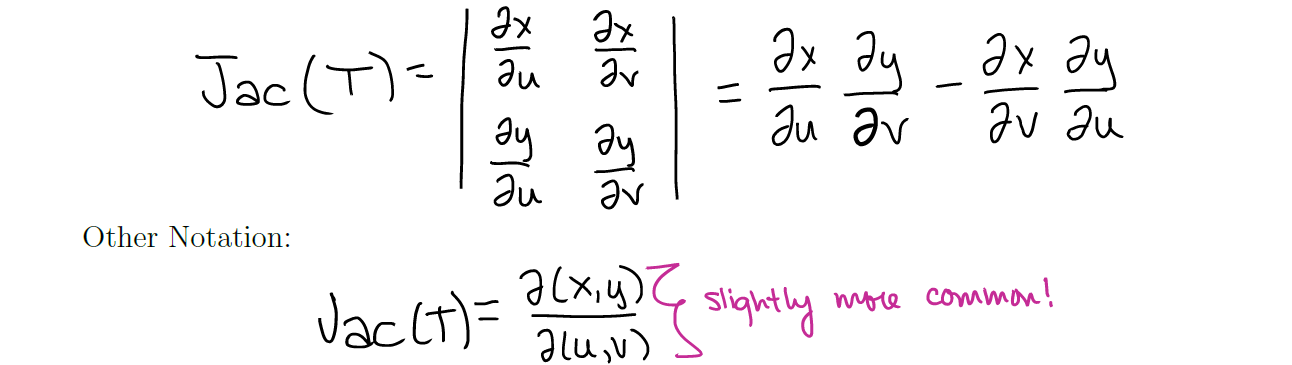 Jac(T) = | ∂x/∂u ∂x/∂v ; ∂y/∂u ∂y/∂v | = ∂x/∂u ∂y/∂v − ∂x/∂v ∂y/∂u
Other Notation:
Jac(T) = ∂(x,y)/∂(u,v) } slightly more common!